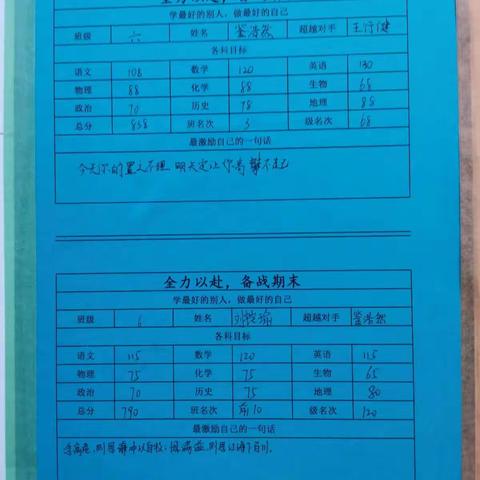 全力以赴，备战期末
学最好的别人，做最好的自己
班级 六 姓名 鉴浩然 超越对手 王行健
各科目标
语文 108 数学 120 英语 130
物理 88 化学 88 生物 68
政治 70 历史 78 地理 88
总分 838 班名次 3 级名次 68
最激励自己的一句话
今天你的置之不理 明天定让你高攀不起
全力以赴，备战期末
学最好的别人，做最好的自己
班级 6 姓名 超越对手 鉴浩然
各科目标
语文 115 数学 120 英语 115
物理 75 化学 75 生物 65
政治 70 历史 75 地理 80
总分 790 班名次 前10 级名次 120
最激励自己的一句话
则思 以自牧；惧满溢，则思江海下百川。